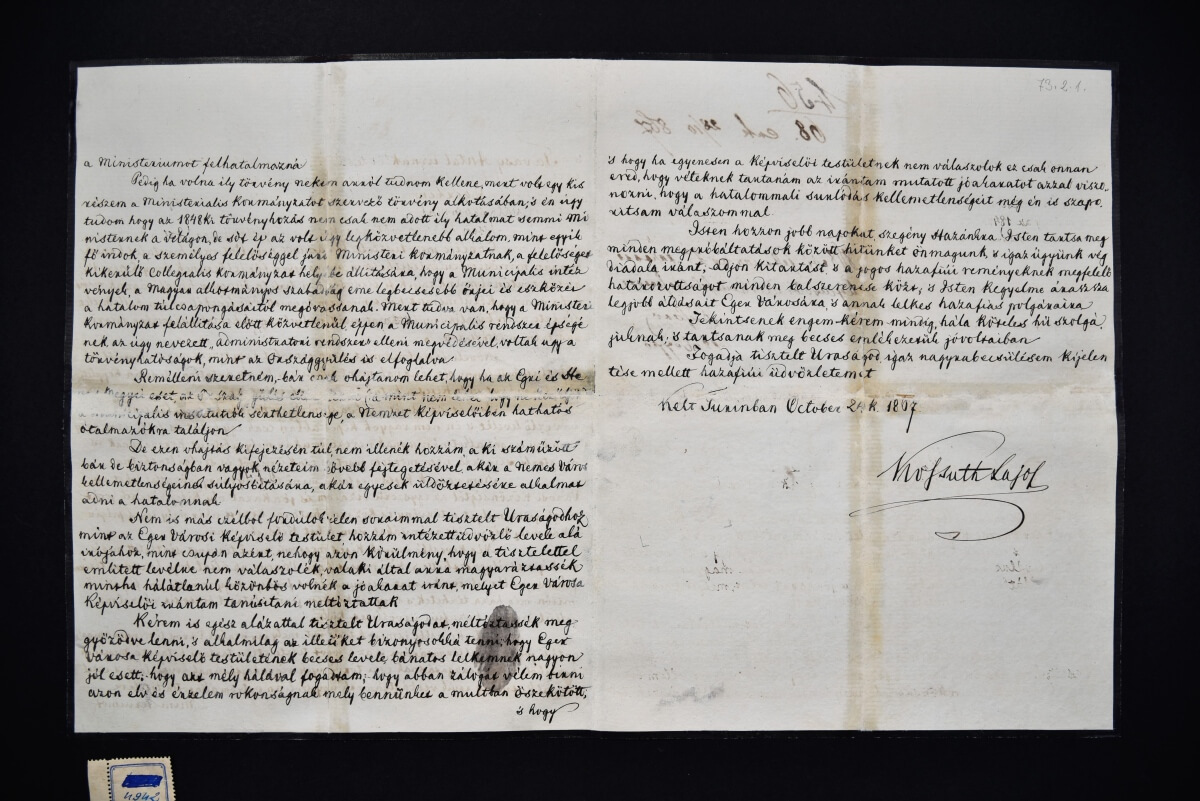 a Ministeriumot felhatalmazná
Pedig ha volna ily törvény nekem arról tudnom kellene, mert volt egy kis
részem a Ministerialis Kormányzatot szervező törvény alkotásában; s én úgy
tudom hogy az 1848ki törvényhozás nemcsak nem adott ily hatalmat semmi Mi
nisternek a világon, de sőt ép az volt úgy legközvetlenebb alkalom, mint egyik
fő indok, a személyes felelősséggel járó Ministeri Kormányzatnak, a felelősséget
kikerülő Collegialis Kormányzat helyébe állítására, hogy a Municipális intéz
vények, a Magyar alkotmányos szabadság eme legbecsesebb őrjei és eszközei
a hatalom túlcsapongásaitól megóvassanak. Mert tudva van, hogy a Ministeri
Kormányzat felállítása előtt közvetlenül, éppen a Municipalis rendszer épségé
nek az úgy nevezett "administratori rendszer" elleni megvédésével, voltak úgy a
törvényhatóságok, mint az Országgyűlés is elfoglalva
Remélleni szeretném, bár csak óhajtanom lehet, hogy ha az Egri és He
Megyei eset, az
municipalis institutio sérthetlensége, a Nemzet Képviselőiben hathatós
oltalmazókra találjon
De ezen óhajtás kifejezésén túl, nem illenék hozzám, a ki száműzött
bár de biztonságban vagyok, nézeteim bővebb fejtegetésével, akár a Nemes Város
kellemetlenségeinek súlyosbítására, akár egyesek üldöztetésére alkalmat
adni a hatalomnak
Nem is más czélból fordulok jelen soraimmal tisztelt Uraságodhoz
mint az Eger Városi Képviselő testület, hozzám intézett üdvözlő levele alá
irójához, mint csupán azért, nehogy azon körülmény, hogy a tisztelettel
említett levélre nem válaszolék, valaki által arra magyaráztassék
mintha hálátlanul közönbös volnék a jóakarat iránt, melyet Eger Városa
Képviselői irántam tanúsítani méltóztattak
Kérem is egész alázattal tisztelt Uraságodat, méltóztassék meg
győződve lenni, 's alkalmilag az illetőket bizonyosokká tenni, hogy Eger
városa képviselő testületének becses levele, bánatos lelkemnek nagyon
jól esett; hogy azt mély hálával fogadtam; hogy abban zálogát vélem bírni
azon elv és érzelem rokonságnak mely bennünket a multban öszekötött,
is hogy
is hogy ha egyenesen a Képviselői testületnek nem válaszolok ez csak onnan
ered, hogy véteknek tartanám az irántam mutatott jóakaratot azzal viszo
nozni, hogy a hatalommali surlódás kellemetlenségeit még én is szapo
rítsam válaszommal
Isten hozzon jobb napokat szegény Hazánkra. Isten tartsa meg
minden megpróbáltatások között hitünket önmagunk, 's igaz ügyünk vég
diadala iránt, adjon kitartást, 's a jogos hazafiúi reményeknek megfelelő
határozottságot minden balszerencse közt, 's Isten Kegyelme áraszsza
legjobb áldásait Eger Városára, 's annak lelkes hazafias polgáraira
Tekintsenek engem kérem mindig, hála köteles hű szolgá
juknak, 's tartsanak meg becses emlékezetük jóvoltaiban
Fogadja tisztelt Uraságod igaz nagyrabecsülésem kijelen
tése mellett hazafiúi üdvözletemet
Kelt Turinban October 24k. 1867
Kossuth Lajos
73.2.1.
4942